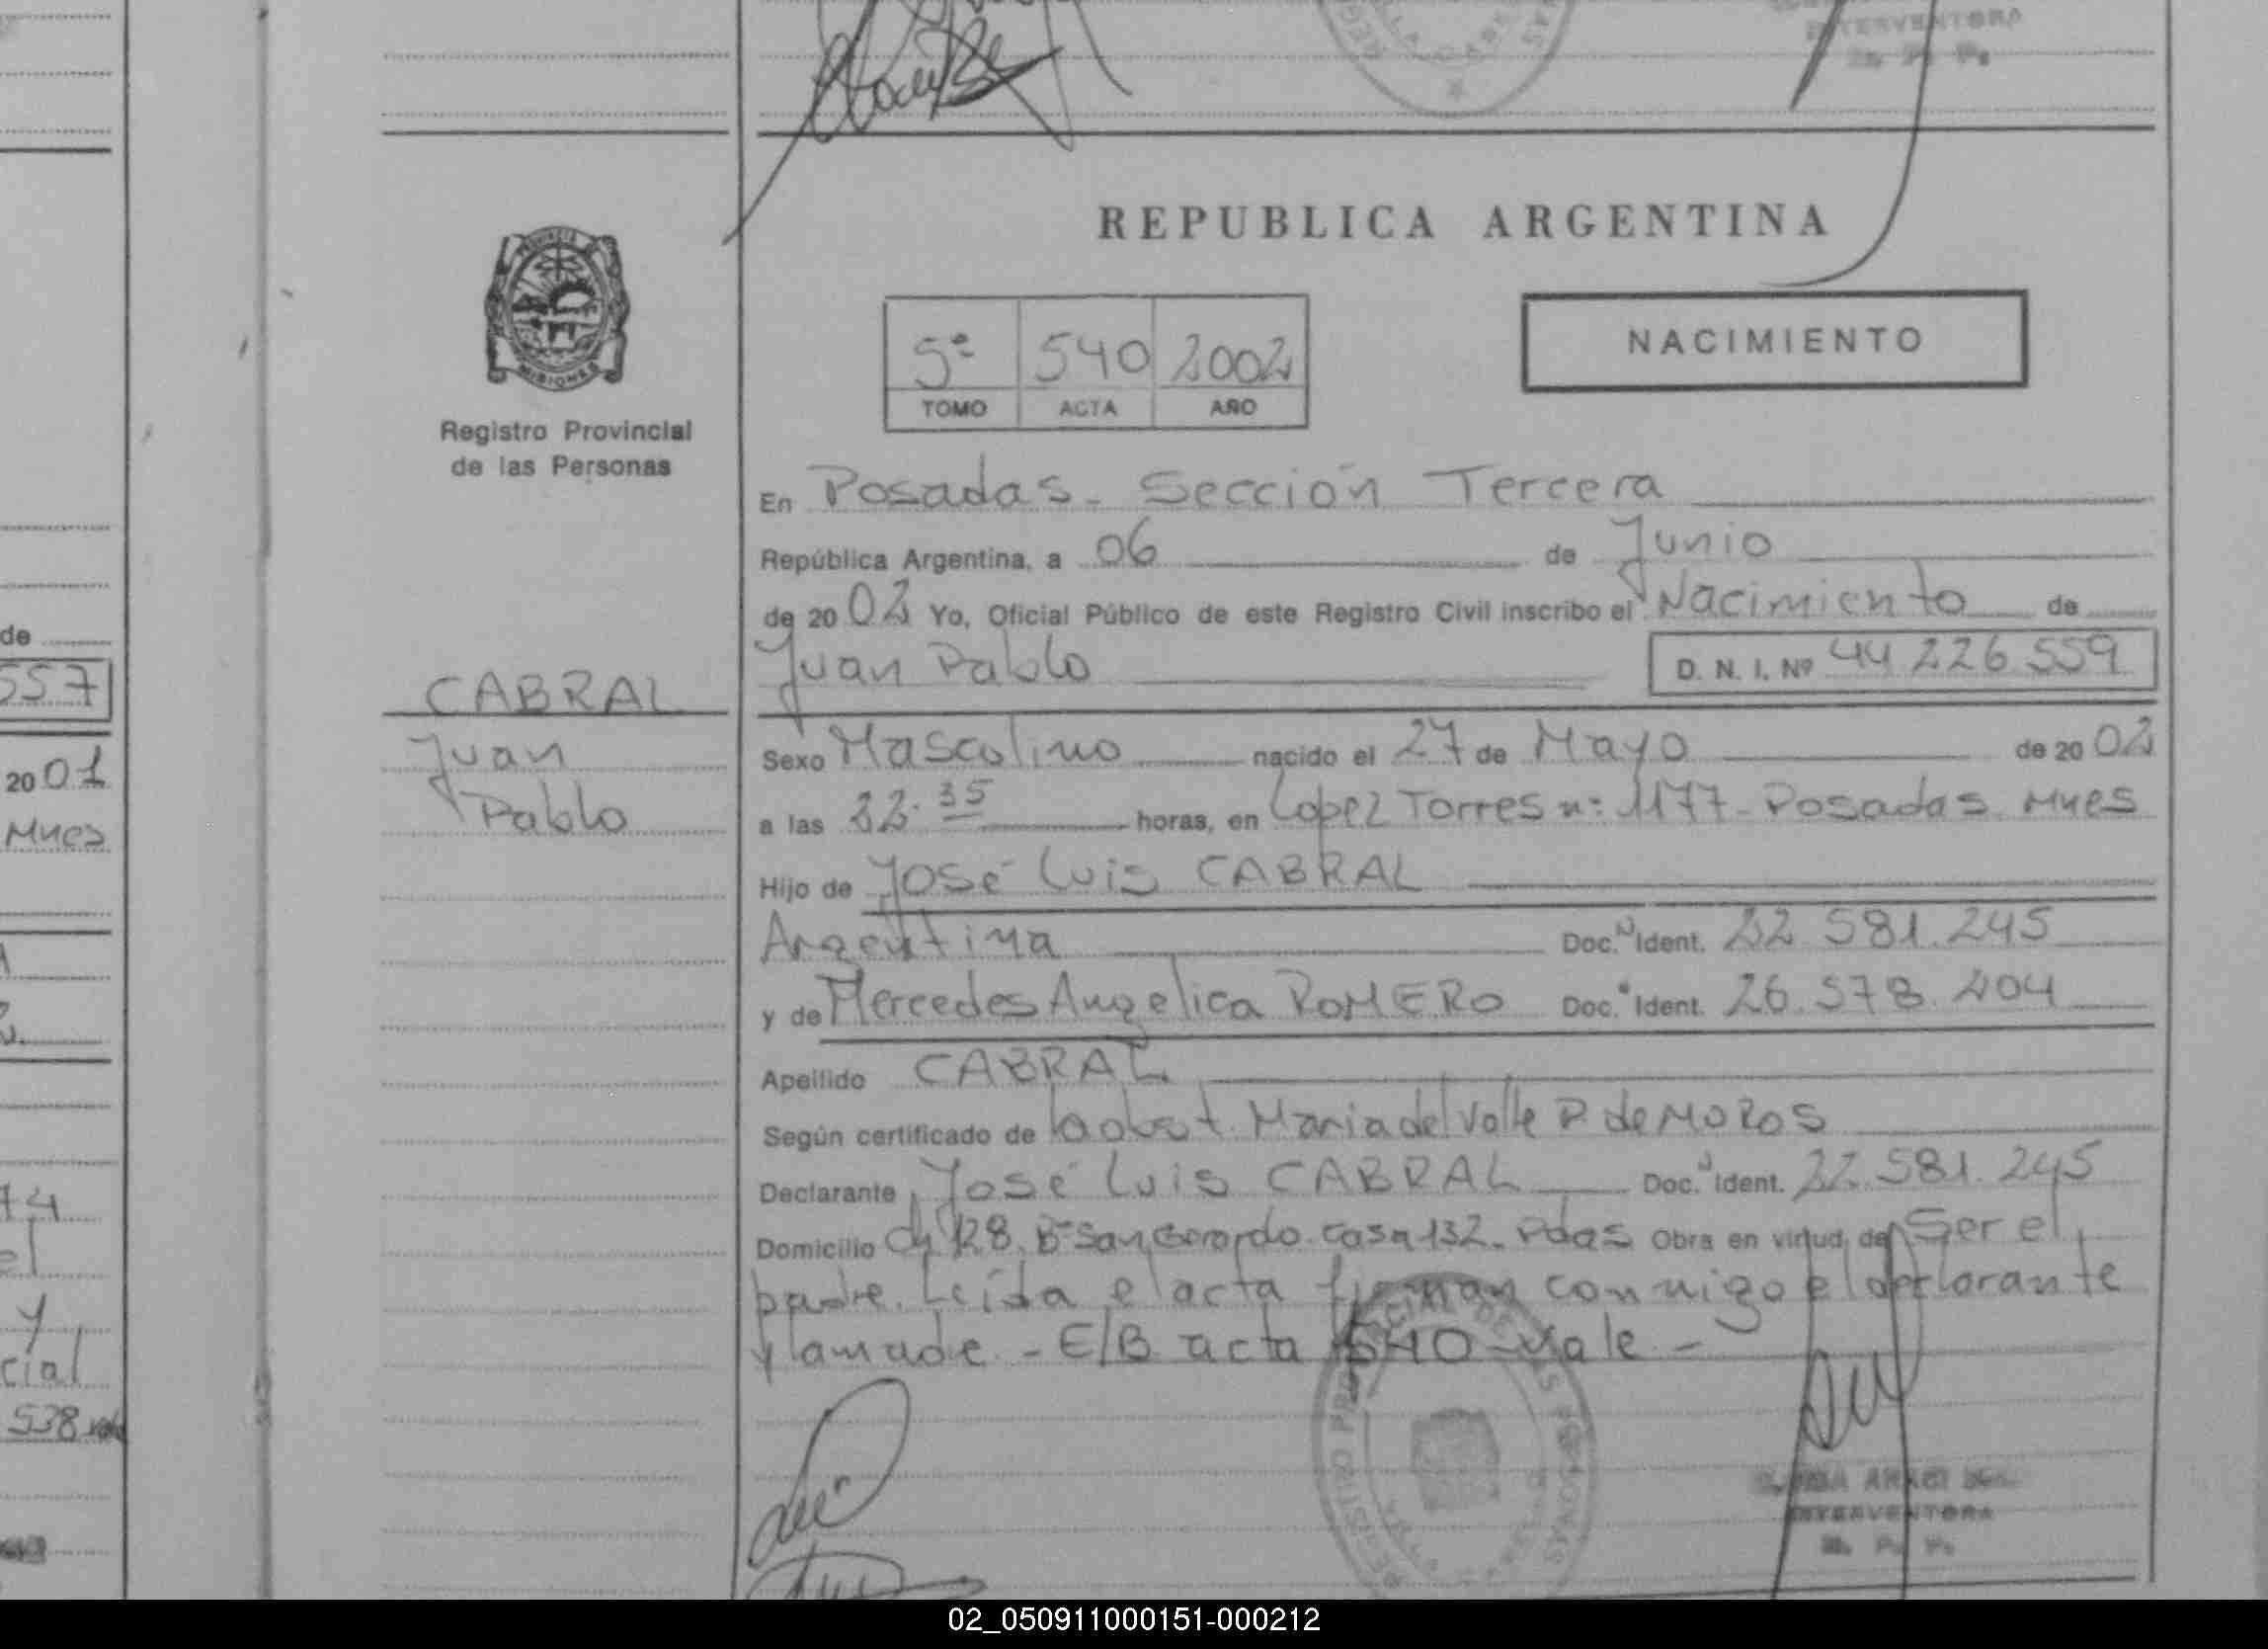 INTERVENTORA
R. P. P.
REPUBLICA ARGENTINA
PROVINCIA
MISIONES
Registro Provincial
de las Personas
5º 540 2002
TOMO ACTA AÑO
NACIMIENTO
En Posadas - Sección Tercera
República Argentina, a 06 de Junio
de 20 02 Yo, Oficial Público de este Registro Civil inscribo el Nacimiento de
Juan Pablo D. N. I. Nº 44 226 559
CABRAL
Juan
Pablo
Sexo Mascolino nacido el 27 de Mayo de 20 02
a las 22. 35 horas, en Lopez Torres nº 1177 - Posadas. Mnes
Hijo de José Luis CABRAL
Argentina Doc. Ident. 22 581.245
y de Mercedes Angelica ROMERO Doc. Ident. 26.578.404
Apellido CABRAL
Según certificado de la obst. Maria del Valle P. de MOROS
Declarante José Luis CABRAL Doc. Ident. 22.581.245
Domicilio Ch 128. Bº San Gerardo. Casa 132. Pdas Obra en virtud de Ser el
padre. Leída el acta firman conmigo el declarante
y la madre. - E/B acta 540 - Vale -
INTERVENTORA
R. P. P.
de
557
20 01
Mnes
74
el
y
cial
538 vale
02_050911000151-000212